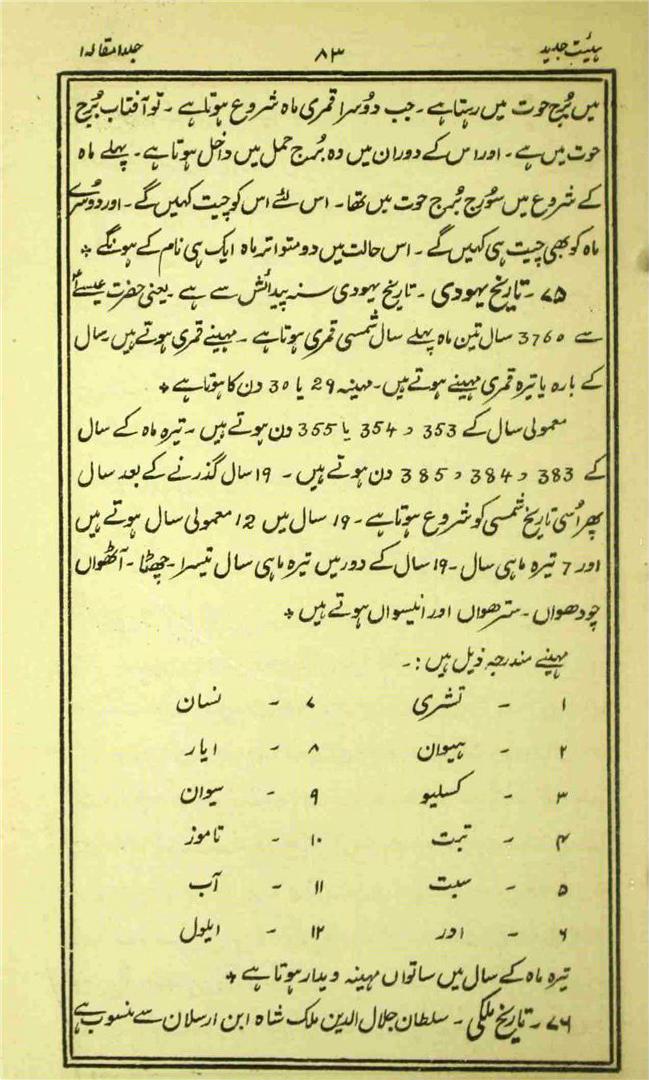 ہیئت جدید ۸۳ جلد ا مقالہ ا
میں بُرج حوت میں رہتا ہے ۔ جب دُوسرا قمری ماہ شروع ہوتا ہے ۔ تو آفتاب بُرج
حوت میں ہے ۔ اور اس کے دوران میں وہ بُرج حمل میں داخل ہوتا ہے ۔ پہلے ماہ
کے شروع میں سُورج بُرج حوت میں تھا ۔ اس لئے اس کو چیت کہیں گے ۔ اور دُوسرے
ماہ کو بھی چیت ہی کہیں گے ۔ اس حالت میں دو متواتر ماہ ایک ہی نام کے ہونگے ٭
۷۵ ۔ تاریخ یہودی ۔ تاریخ یہودی سنہ پیدائش سے ہے یعنی حضرت عیسےٰؑ
سے 3760 سال تین ماہ پہلے سال شمسی قمری ہوتا ہے ۔ مہینے قمری ہوتے ہیں سال
کے بارہ یا تیرہ قمری مہینے ہوتے ہیں ۔ مہینہ 29 یا 30 دن کا ہوتا ہے ٭
معمولی سال کے 353 ، 354 یا 355 دن ہوتے ہیں ۔ تیرہ ماہ کے سال
کے 383 ، 384 ، 385 دن ہوتے ہیں ۔ 19 سال گذرنے کے بعد سال
پھر اُسی تاریخ شمسی کو شروع ہوتا ہے ۔ 19 سال میں 12 معمولی سال ہوتے ہیں
اور 7 تیرہ ماہی سال ۔ 19 سال کے دور میں تیرہ ماہی سال تیسرا ۔ چھٹا ۔ آٹھواں
چودھواں ۔ سترھواں اور انیسواں ہوتے ہیں ٭
مہینے مندرجہ ذیل ہیں : ۔
۱ ۔ تشری ۷ ۔ نسان
۲ ۔ ہیوان ۸ ۔ ایار
۳ ۔ کسلیو ۹ ۔ سیوان
۴ ۔ تبت ۱۰ ۔ تاموز
۵ ۔ سبت ۱۱ ۔ آب
۶ ۔ ادر ۱۲ ۔ ایلول
تیرہ ماہ کے سال میں ساتواں مہینہ ویدار ہوتا ہے ٭
۷۶ ۔ تاریخ ملکی ۔ سلطان جلال الدین ملک شاہ ابن ارسلان سے منسوب ہے